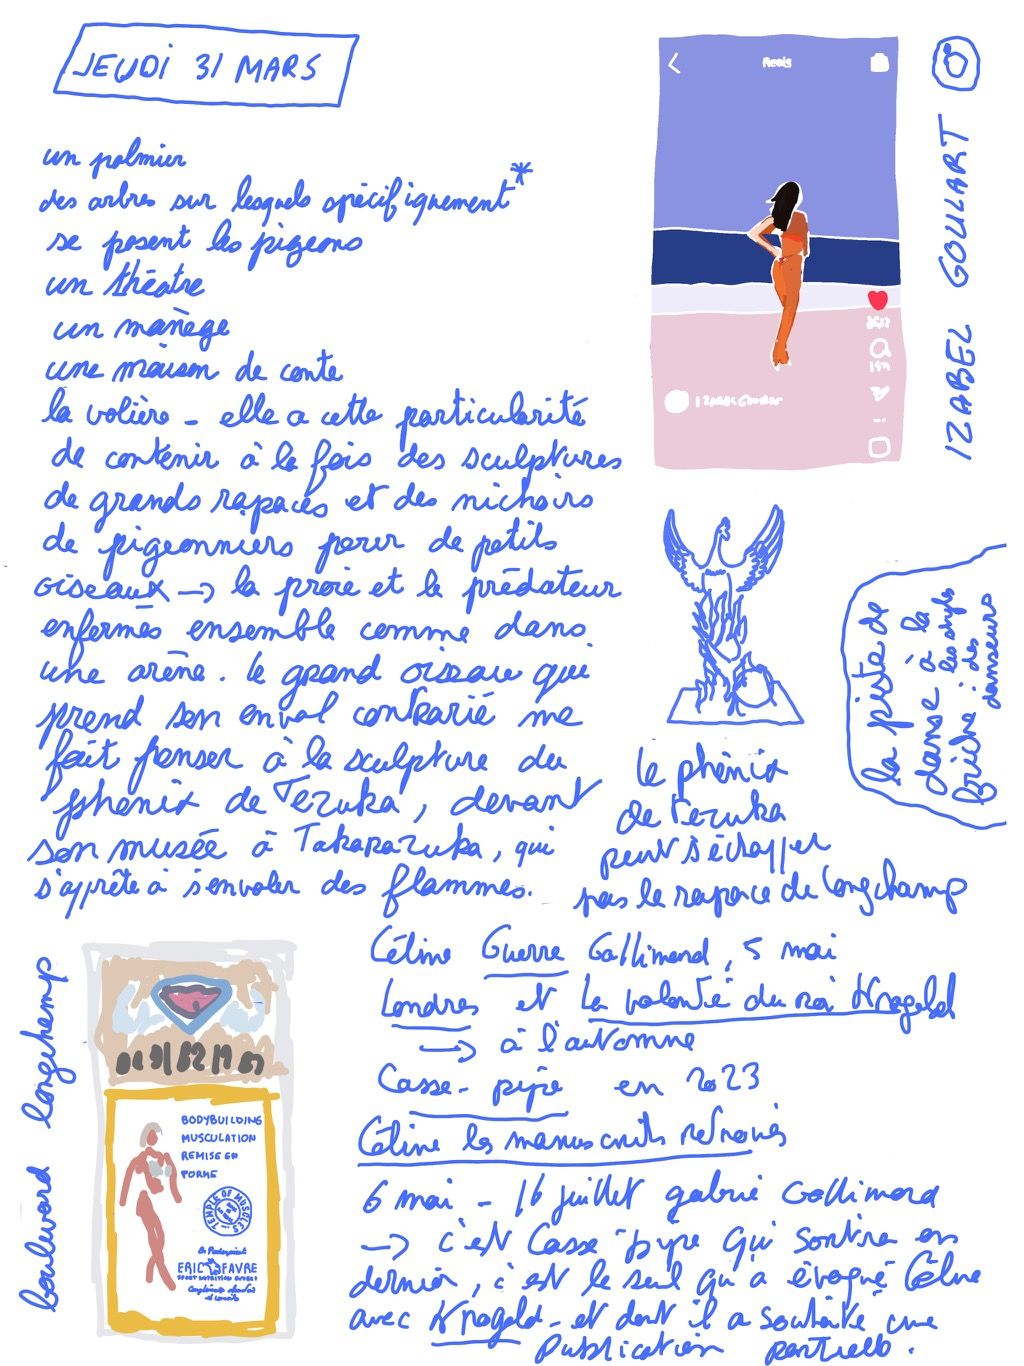 JEUDI 31 MARS
un palmier
des arbres sur lesquels spécifiquement*
se posent les pigeons
un théâtre
un manège
une maison de conte
la volière - elle a cette particularité
de contenir à la fois des sculptures
de grands rapaces et des nichoirs
de pigeonniers pour de petits
oiseaux → la proie et le prédateur
enfermés ensemble comme dans
une arène. le grand oiseau qui
prend son envol contrarié me
fait penser à la sculpture du
phénix de Tezuka, devant
son musée à Takarazuka, qui
s'apprête à s'envoler des flammes.
Reels
IZABEL GOULART
le phénix
de Tezuka
peut s'échapper
pas le rapace de Longchamp
la piste de
danse à la
friche : les styles
des
danseurs
boulevard longchamp
BODYBUILDING
MUSCULATION
REMISE EN
FORME
TEMPLE OF MUSCLES
ERIC FAVRE
SPORT NUTRITION EXPERT
Céline Guerre Gallimard, 5 mai
Londres et La volonté du roi Krogold
→ à l'automne
Casse-pipe en 2023
Céline les manuscrits retrouvés
6 mai - 16 juillet galerie Gallimard
→ c'est Casse-pipe qui sortira en
dernier, c'est le seul qu'a évoqué Céline
avec Krogold - et dont il a souhaité une
publication partielle.